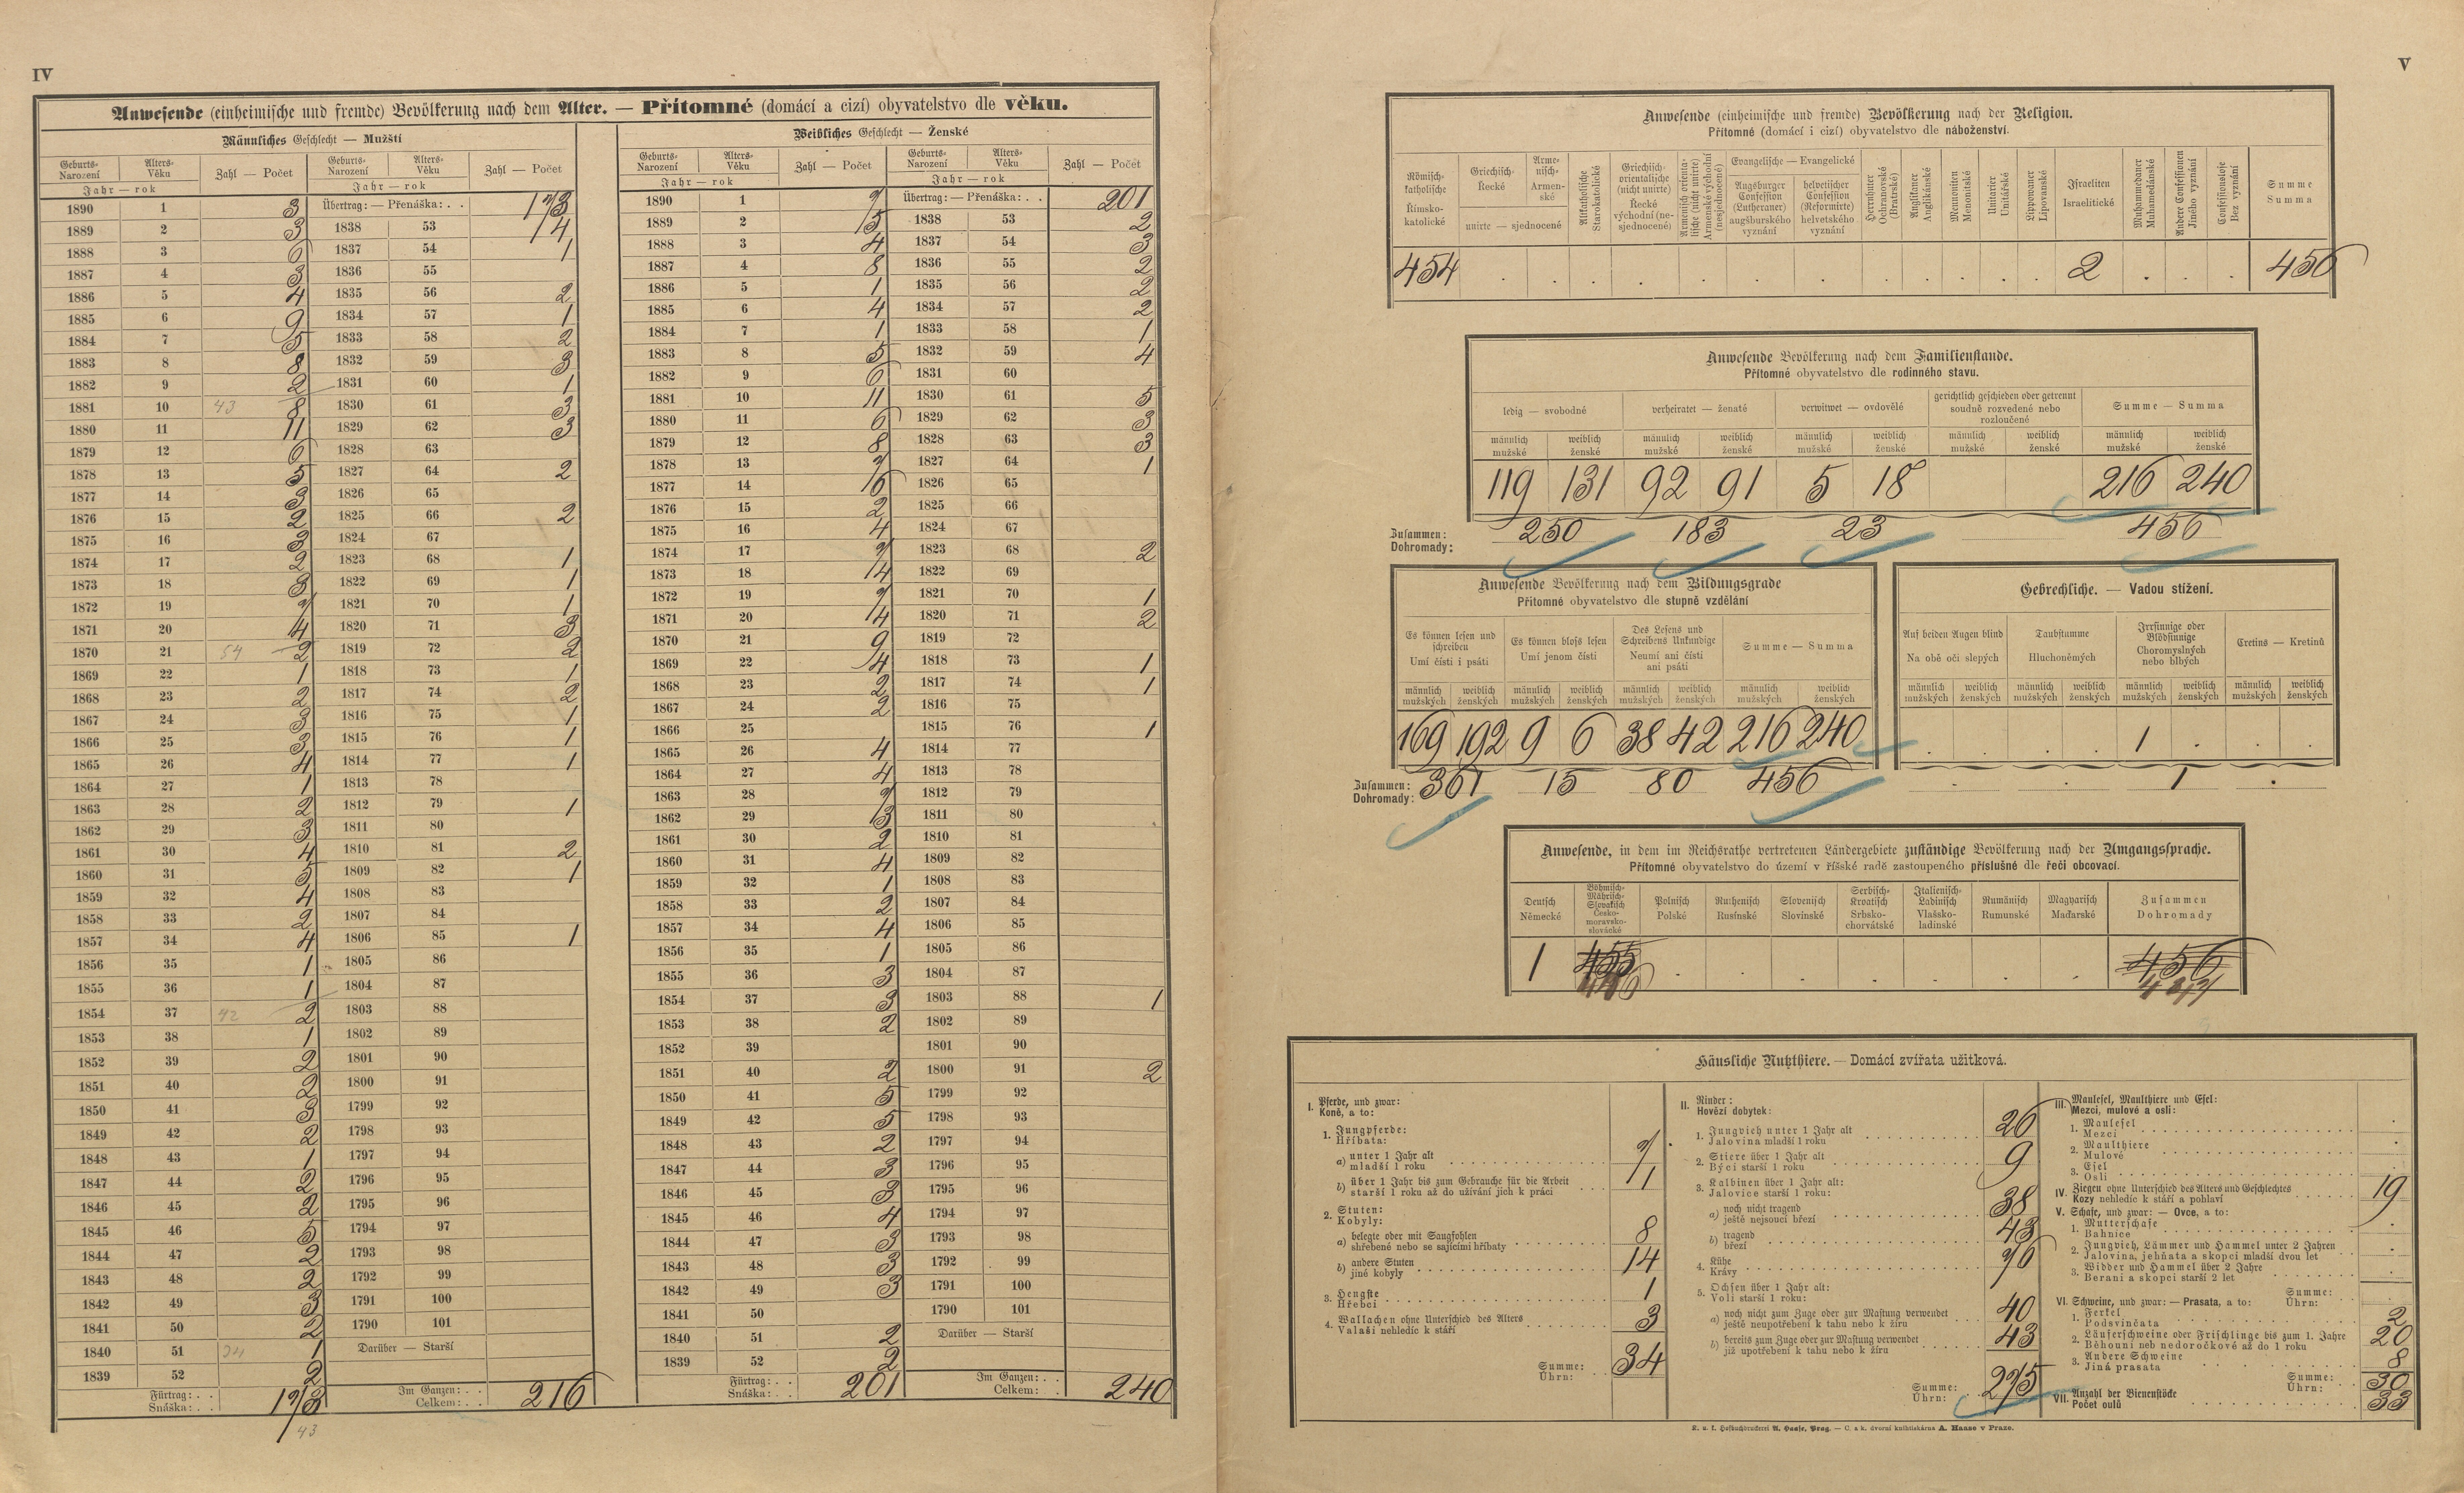 IV
Anwesende (einheimische und fremde) Bevölkerung nach dem Alter. — Přítomné (domácí a cizí) obyvatelstvo dle věku.
Männliches Geschlecht — Mužští
Geburts- Narození Alters- Věku Zahl — Počet Geburts- Narození Alters- Věku Zahl — Počet
Jahr — rok Jahr — rok
1890 1 3 Übertrag: — Přenáška: . . 173
1889 2 3 1838 53 14
1888 3 6 1837 54 1
1887 4 3 1836 55
1886 5 4 1835 56 2
1885 6 9 1834 57 1
1884 7 5 1833 58 2
1883 8 8 1832 59 3
1882 9 2 1831 60 1
1881 10 43 8 1830 61 3
1880 11 11 1829 62 3
1879 12 6 1828 63
1878 13 5 1827 64 2
1877 14 3 1826 65
1876 15 2 1825 66 2
1875 16 3 1824 67
1874 17 2 1823 68 1
1873 18 3 1822 69 1
1872 19 7 1821 70 1
1871 20 4 1820 71 3
1870 21 54 2 1819 72 2
1869 22 1 1818 73 1
1868 23 2 1817 74 2
1867 24 3 1816 75 1
1866 25 3 1815 76 1
1865 26 4 1814 77 1
1864 27 1 1813 78
1863 28 2 1812 79 1
1862 29 3 1811 80
1861 30 4 1810 81 2
1860 31 5 1809 82 1
1859 32 4 1808 83
1858 33 2 1807 84
1857 34 4 1806 85 1
1856 35 1 1805 86
1855 36 1 1804 87
1854 37 42 2 1803 88
1853 38 1 1802 89
1852 39 2 1801 90
1851 40 2 1800 91
1850 41 3 1799 92
1849 42 2 1798 93
1848 43 1 1797 94
1847 44 2 1796 95
1846 45 2 1795 96
1845 46 5 1794 97
1844 47 2 1793 98
1843 48 2 1792 99
1842 49 3 1791 100
1841 50 2 1790 101
1840 51 24 1 Darüber — Starší
1839 52 2
Fürtrag: . . Snáška: . . 173 Im Ganzen: . . Celkem: . . 216
43
Weibliches Geschlecht — Ženské
Geburts- Narození Alters- Věku Zahl — Počet Geburts- Narození Alters- Věku Zahl — Počet
Jahr — rok Jahr — rok
1890 1 7 Übertrag: — Přenáška: . . 201
1889 2 15 1838 53 2
1888 3 4 1837 54 3
1887 4 8 1836 55 2
1886 5 1 1835 56 2
1885 6 4 1834 57 2
1884 7 1 1833 58 1
1883 8 5 1832 59 4
1882 9 6 1831 60
1881 10 11 1830 61 5
1880 11 6 1829 62 3
1879 12 8 1828 63 3
1878 13 7 1827 64 1
1877 14 16 1826 65
1876 15 2 1825 66
1875 16 4 1824 67
1874 17 7 1823 68 2
1873 18 14 1822 69
1872 19 7 1821 70 1
1871 20 14 1820 71 2
1870 21 9 1819 72
1869 22 4 1818 73 1
1868 23 2 1817 74 1
1867 24 2 1816 75
1866 25 1815 76 1
1865 26 4 1814 77
1864 27 4 1813 78
1863 28 7 1812 79
1862 29 13 1811 80
1861 30 2 1810 81
1860 31 4 1809 82
1859 32 1 1808 83
1858 33 2 1807 84
1857 34 4 1806 85
1856 35 1 1805 86
1855 36 3 1804 87
1854 37 3 1803 88 1
1853 38 2 1802 89
1852 39 1801 90
1851 40 2 1800 91 2
1850 41 5 1799 92
1849 42 5 1798 93
1848 43 2 1797 94
1847 44 3 1796 95
1846 45 3 1795 96
1845 46 4 1794 97
1844 47 3 1793 98
1843 48 3 1792 99
1842 49 3 1791 100
1841 50 1790 101
1840 51 2 Darüber — Starší
1839 52 2
Fürtrag: . . Snáška: . . 201 Im Ganzen: . . Celkem: . 240
V
Anwesende (einheimische und fremde) Bevölkerung nach der Religion.
Přítomné (domácí i cizí) obyvatelstvo dle náboženství.
Römisch-katholische Římsko-katolické
Griechisch- Řecké
Armenisch- Armenské
unirte — sjednocené
Altkatholische Starokatolické
Griechisch-orientalische (nicht unirte) Řecké východní (nesjednocené)
Armenisch orientalische (nicht unirte) Armenské východní (nesjednocené)
Evangelische — Evangelické
Augsburger Confession (Lutheraner) augšburského vyznání
helvetischer Confession (Reformirte) helvetského vyznání
Herrnhuter Ochranovské (Bratrské)
Anglikaner Anglikánské
Mennoniten Menonitské
Unitarier Unitářské
Lippowaner Lipovanské
Israeliten Israelitické
Muhammedaner Muhamedánské
Andere Confessionen Jiného vyznání
Confessionslose Bez vyznání
Summe Summa
454 . . . . . . . . . . . . 2 . . . 456
Anwesende Bevölkerung nach dem Familienstande.
Přítomné obyvatelstvo dle rodinného stavu.
ledig — svobodné verheiratet — ženaté verwitwet — ovdovělé gerichtlich geschieden oder getrennt soudně rozvedené nebo rozloučené Summe — Summa
männlich mužské weiblich ženské männlich mužské weiblich ženské männlich mužské weiblich ženské männlich mužské weiblich ženské männlich mužské weiblich ženské
119 131 92 91 5 18 216 240
Zusammen: Dohromady: 250 183 23 456
Anwesende Bevölkerung nach dem Bildungsgrade
Přítomné obyvatelstvo dle stupně vzdělání
Es können lesen und schreiben Umí čísti i psáti
Es können bloß lesen Umí jenom čísti
Des Lesens und Schreibens Unkundige Neumí ani čísti ani psáti
Summe — Summa
männlich mužských weiblich ženských männlich mužských weiblich ženských männlich mužských weiblich ženských männlich mužských weiblich ženských
169 192 9 6 38 42 216 240
Zusammen: Dohromady: 361 15 80 456
Gebrechliche. — Vadou stížení.
Auf beiden Augen blind Na obě oči slepých
Taubstumme Hluchoněmých
Irrsinnige oder Blödsinnige Choromyslných nebo blbých
Cretins — Kretinů
männlich mužských weiblich ženských männlich mužských weiblich ženských männlich mužských weiblich ženských männlich mužských weiblich ženských
. . . . 1 . . .
. . 1 .
Anwesende, in dem im Reichsrathe vertretenen Ländergebiete zuständige Bevölkerung nach der Umgangssprache.
Přítomné obyvatelstvo do území v říšské radě zastoupeného příslušné dle řeči obcovací.
Deutsch Německé
Böhmisch-Mährisch-Slovakisch Česko-moravsko-slovácké
Polnisch Polské
Ruthenisch Rusínské
Slovenisch Slovinské
Serbisch-Kroatisch Srbsko-chorvátské
Italienisch-Ladinisch Vlašsko-ladinské
Rumänisch Rumunské
Magyarisch Maďarské
Zusammen Dohromady
1 455 . . . . . . . 456
446 447
Häusliche Nutzthiere. — Domácí zvířata užitková.
I. Pferde, und zwar:
Koně, a to:
1. Jungpferde:
Hříbata:
a) unter 1 Jahr alt
mladší 1 roku 7
b) über 1 Jahr bis zum Gebrauche für die Arbeit
starší 1 roku až do užívání jich k práci 1
2. Stuten:
Kobyly:
a) belegte oder mit Saugfohlen
shřebené nebo se sajícími hříbaty 8
b) andere Stuten
jiné kobyly 14
3. Hengste
Hřebci 1
4. Wallachen ohne Unterschied des Alters
Valaši nehledíc k stáří 3
Summe:
Úhrn: 34
II. Rinder:
Hovězí dobytek:
1. Jungvieh unter 1 Jahr alt
Jalovina mladší 1 roku 26
2. Stiere über 1 Jahr alt
Býci starší 1 roku 9
3. Kalbinen über 1 Jahr alt:
Jalovice starší 1 roku:
a) noch nicht tragend
ještě nejsoucí březí 38
b) tragend
březí 43
4. Kühe
Krávy 76
5. Ochsen über 1 Jahr alt:
Voli starší 1 roku:
a) noch nicht zum Zuge oder zur Mastung verwendet
ještě neupotřebení k tahu nebo k žíru 40
b) bereits zum Zuge oder zur Mastung verwendet
již upotřebení k tahu nebo k žíru 43
Summe:
Úhrn: 275
III. Maulesel, Maulthiere und Esel:
Mezci, mulové a osli:
1. Maulesel
Mezci .
2. Maulthiere
Mulové .
3. Esel
Osli .
IV. Ziegen ohne Unterschied des Alters und Geschlechtes
Kozy nehledíc k stáří a pohlaví 19
V. Schafe, und zwar: — Ovce, a to:
1. Mutterschafe
Bahnice .
2. Jungvieh, Lämmer und Hammel unter 2 Jahren
Jalovina, jehňata a skopci mladší dvou let .
3. Widder und Hammel über 2 Jahre
Berani a skopci starší 2 let .
Summe:
Úhrn: .
VI. Schweine, und zwar: — Prasata, a to:
1. Ferkel
Podsvinčata 2
2. Läuferschweine oder Frischlinge bis zum 1. Jahre
Běhouni neb nedoročkové až do 1 roku 20
3. Andere Schweine
Jiná prasata 8
Summe:
Úhrn: 30
VII. Anzahl der Bienenstöcke
Počet oulů 33
K. u. k. Hofbuchdruckerei A. Haase, Prag. — C. a k. dvorní knihtiskárna A. Haase v Praze.